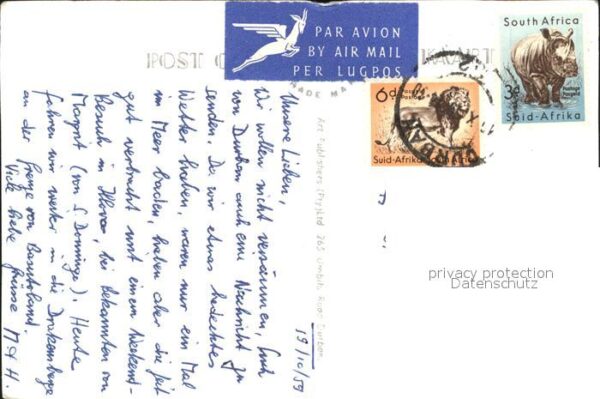 PAR AVION
BY AIR MAIL
PER LUGPOS
POST
KAART
South Africa
3d
Postage
Posgeld
Suid-Afrika
6d
Postage
Posgeld
Suid-Afrika South Africa
19/10/59
Unsere Lieben,
Wir wollen nicht versäumen, Euch
von Durban auch eine Nachricht zu
senden. Da wir etwas bedecktes
Wetter haben, waren wir nur ein Mal
im Meer baden, haben aber die Zeit
gut verbracht mit einem Weekend-
Besuch in Illovo, bei Bekannten von
Margrit (von S. Domingo). Heute
fahren wir weiter in die Drakensberge
an der Grenze von Basutoland.
Viele liebe Grüsse M & H.
Art Publishers (Pty) Ltd 265 Umbilo Road Durban
privacy protection
Datenschutz